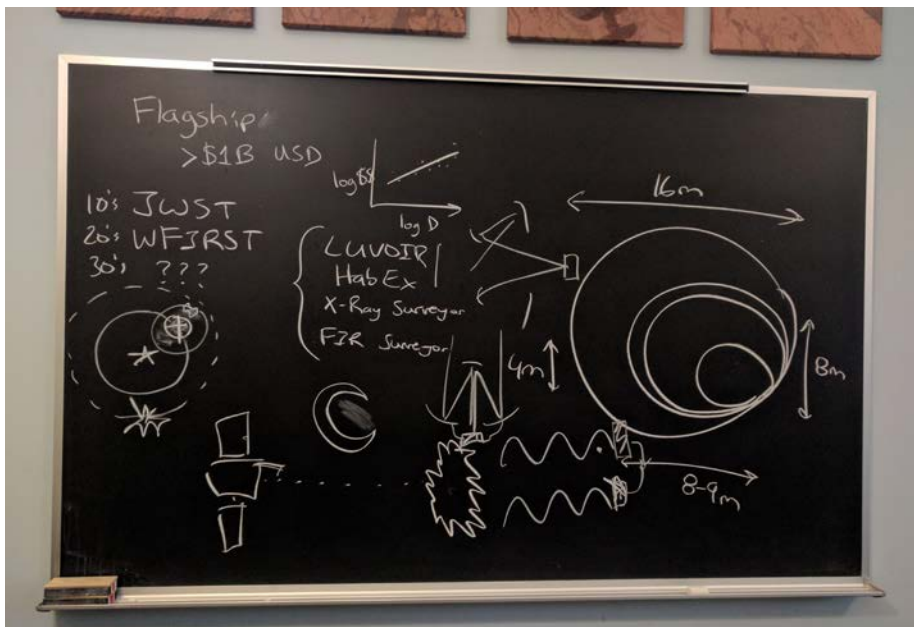 Flagship
>$1B USD
10's JWST
20's WFIRST
30's ???
log $$
log D
LUVOIR
HabEx
X-Ray Surveyor
FIR Surveyor
16m
4m
8m
8-9m